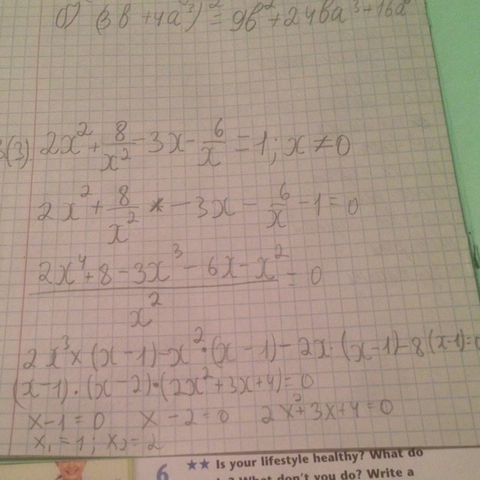 б) (3b + 4a³)² = 9b² + 24ba³ + 16a
(3) 2x² + 8/x² - 3x - 6/x = 1; x ≠ 0
2x² + 8/x² - 3x - 6/x - 1 = 0
(2x⁴ + 8 - 3x³ - 6x - x²)/x² = 0
2x³ × (x - 1) - x² · (x - 1) - 2x · (x - 1) - 8(x - 1) = 0
(x - 1) · (x - 2) · (2x² + 3x + 4) = 0
x - 1 = 0 x - 2 = 0 2x² + 3x + 4 = 0
x₁ = 1; x₂ = 2
6 ★★ Is your lifestyle healthy? What do
What don't you do? Write a